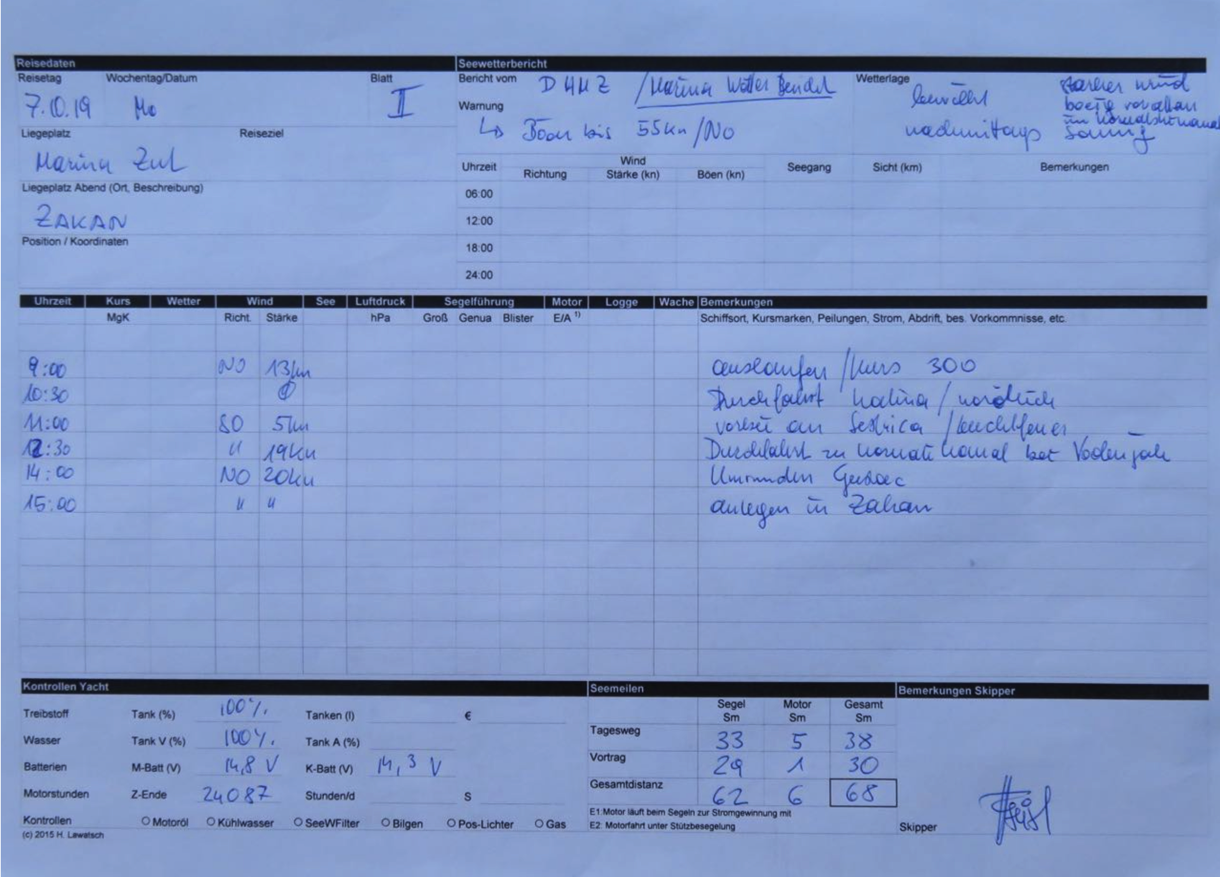 Reisedaten
Reisetag Wochentag/Datum Blatt
7.10.19 Mo II
Liegeplatz Reiseziel
Marina Zut
Liegeplatz Abend (Ort, Beschreibung)
ZAKAN
Position / Koordinaten
Seewetterbericht
Bericht vom DHMZ / Marina Wetter Bericht
Warnung
↳ Böen bis 55kn / NO
Wetterlage
bewölkt
nachmittags sonnig
starker Wind
Uhrzeit Wind Seegang Sicht (km) Bemerkungen
Richtung Stärke (kn) Böen (kn)
06:00
12:00
18:00
24:00
Uhrzeit Kurs Wetter Wind See Luftdruck Segelführung Motor Logge Wache Bemerkungen
MgK Richt. Stärke hPa Groß Genua Blister E/A 1) Schiffsort, Kursmarken, Peilungen, Strom, Abdrift, bes. Vorkommnisse, etc.
9:00 NO 13kn auslaufen / Kurs 300
10:30 Ø Durchfahrt / nördlich
11:00 SO 5kn vorbei an Sestrica / Leuchtfeuer
12:30 " 19kn Durchfahrt zu Kornati Kanal bei
14:00 NO 20kn Umrunden
15:00 " " anlegen in Zakan
Kontrollen Yacht
Treibstoff Tank (%) 100% Tanken (l) €
Wasser Tank V (%) 100% Tank A (%)
Batterien M-Batt (V) 14,8 V K-Batt (V) 14,3 V
Motorstunden Z-Ende 24087 Stunden/d S
Kontrollen O Motoröl O Kühlwasser O SeeWFilter O Bilgen O Pos-Lichter O Gas
(c) 2015 H. Lawetsch
Seemeilen
Segel Motor Gesamt
Sm Sm Sm
Tagesweg 33 5 38
Vortrag 29 1 30
Gesamtdistanz 62 6 68
E1:Motor läuft beim Segeln zur Stromgewinnung mit
E2: Motorfahrt unter Stützbesegelung
Bemerkungen Skipper
Skipper